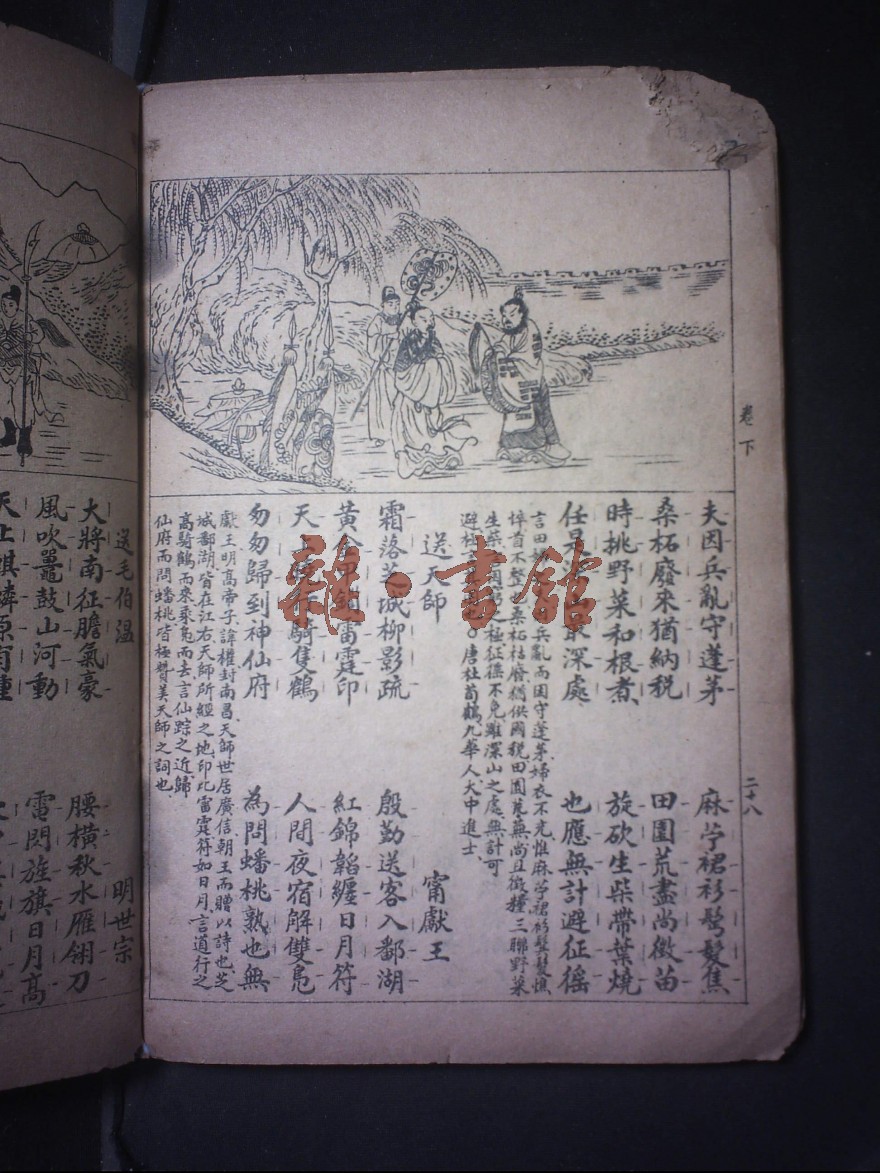 卷下
二十八
夫因兵亂守蓬茅　麻苧裙衫鬢髮焦
桑柘廢來猶納稅　田園荒盡尚徵苗
時挑野菜和根煮　旋砍生柴帶葉燒
任是深山最深處　也應無計避征徭
言田兵亂而困守蓬茅、婦衣不光惟麻苧裙衫鬢髮憔
悴首不整也桑柘枯廢猶供國稅田園荒蕪尚且徵糧三聯野菜
生柴之極征徭不免雖深山之處無計可
避○唐杜荀鶴九華人大中進士、
送天師　甯獻王
霜落芝城柳影疏　殷勤送客入鄱湖
黃金甲鎖雷霆印　紅錦韜纏日月符
天行騎隻鶴　人間夜宿解雙鳧
匆匆歸到神仙府　為問蟠桃熟也無
獻王明高帝子、諱權封南昌、天師世居廣信、朝王而贈以詩也、芝
城鄱湖、皆在江右天師所經之地、印比雷霆、符如日月、言道行之
高騎鶴而來、乘鳧而去言仙踪之近歸
仙府而問蟠桃、皆極贊美天師之詞也、
送毛伯温　明世宗
大將南征膽氣豪　腰橫秋水雁翎刀
風吹鼉鼓山河動　電閃旌旗日月高
天上麒麟原有種
雜·書館